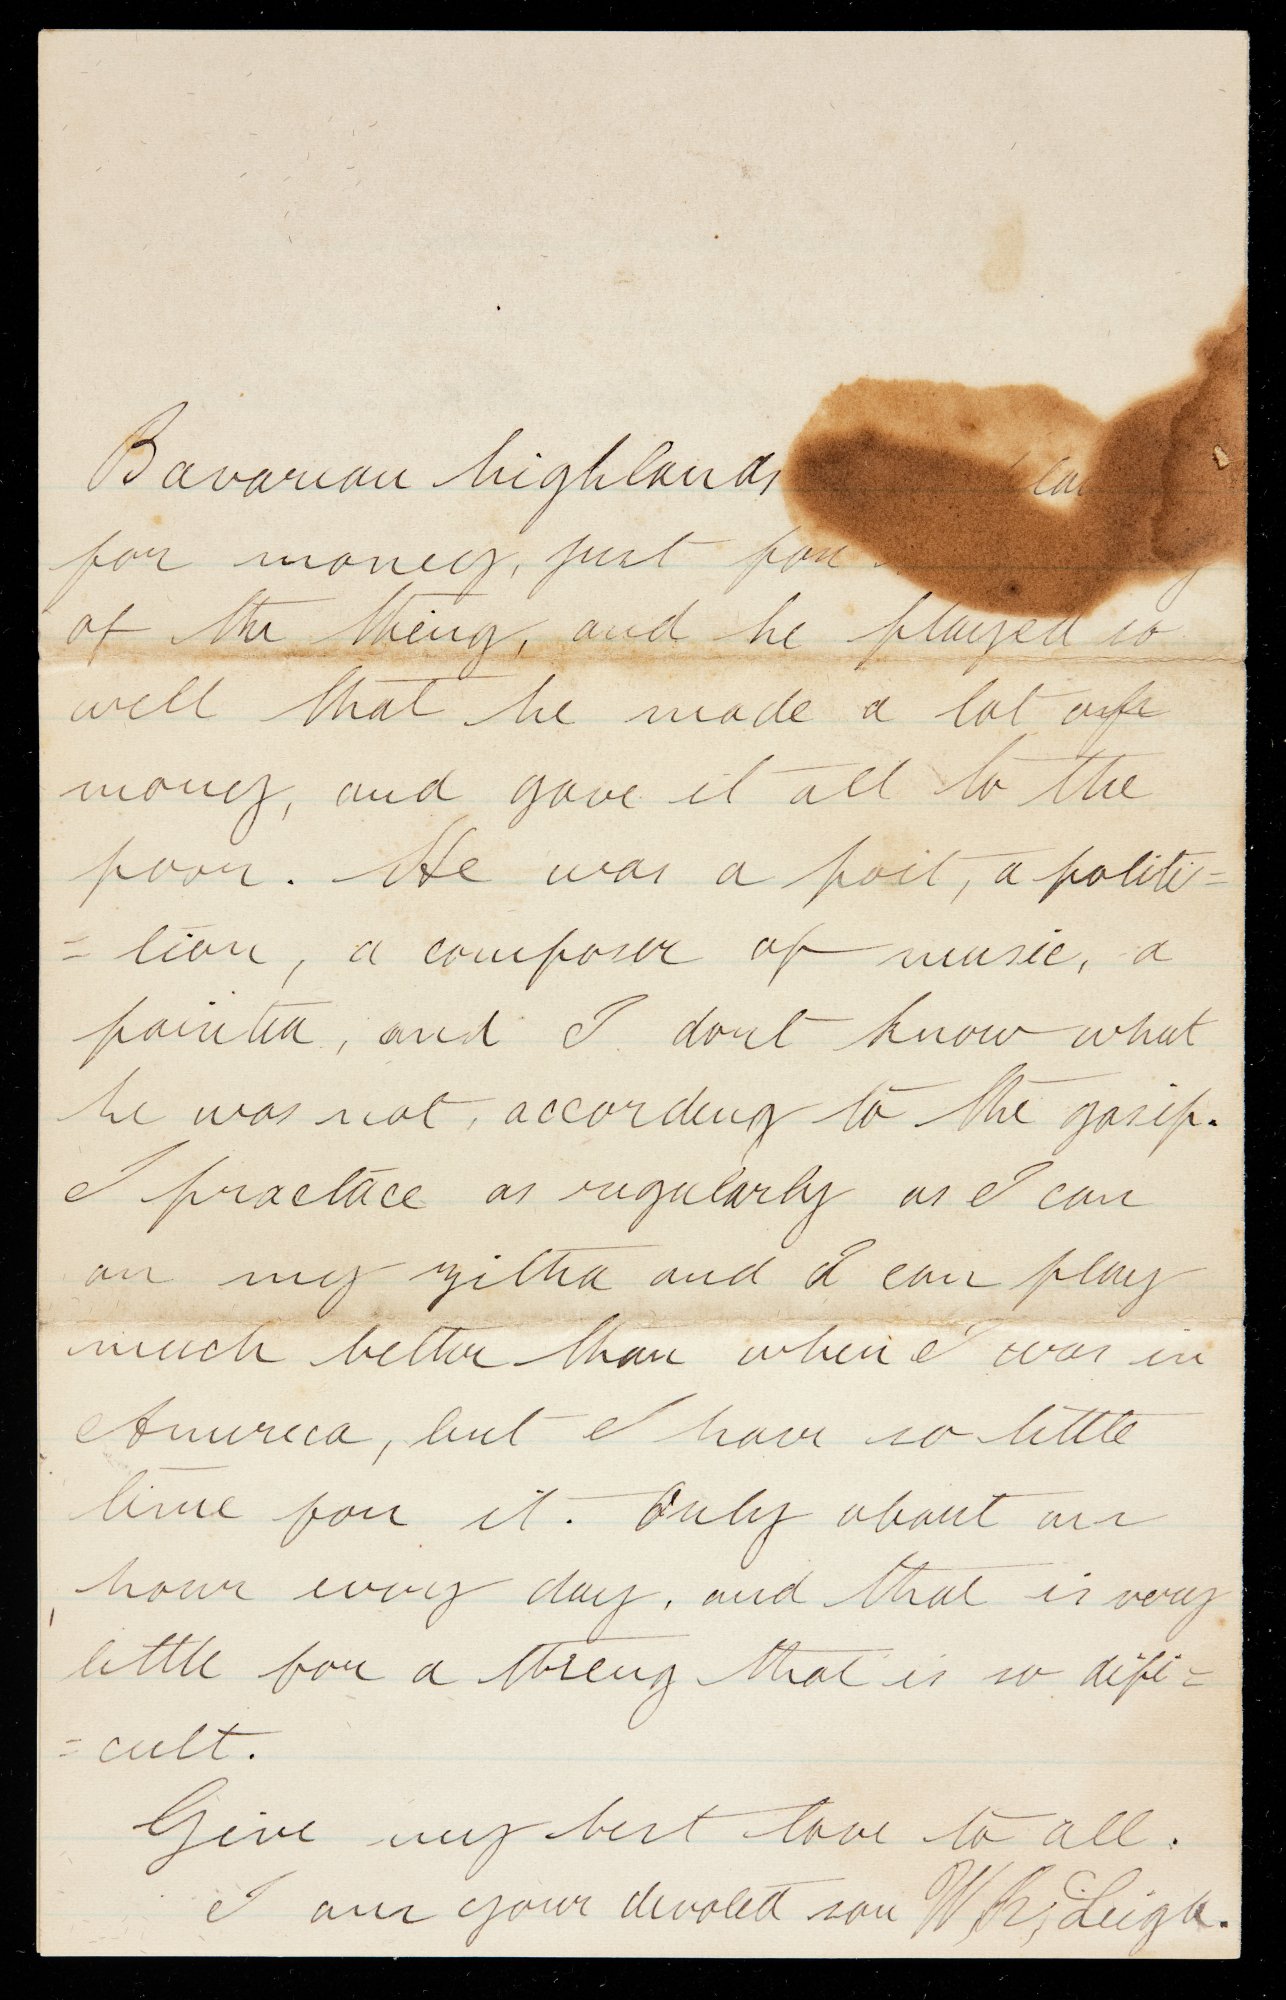 Bavarian highlands
for money, just for
of the thing, and he played so
well that he made a lot of
money, and gave it all to the
poor. He was a poit, a politi=
=tion, a composer of music, a
painter, and I dont know what
he was not, according to the gosip.
I practace as regularly as I can
on my zither and I can play
much better than when I was in
America, but I have so little
time for it. Only about an
hour every day, and that is very
little for a thing that is so difi=
=cult.
Give my best love to all.
I am your devoted son W. R. Leigh.